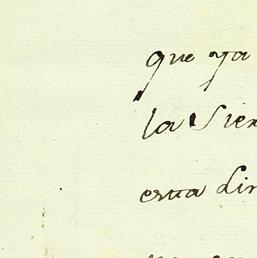 que ya
la Sier
esta dir